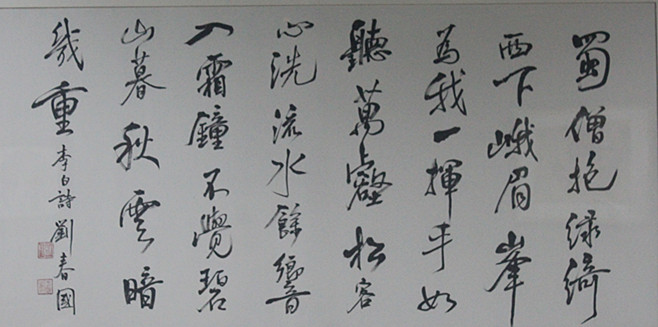 蜀僧抱绿绮
西下峨眉峯
為我一揮手如
聽萬壑松客
心洗流水餘響
入霜鐘不覺碧
山暮秋雲暗
幾重
李白詩 劉春國